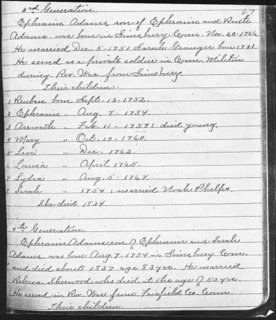 67
3rd Generation.
Ephraim Adams, son of Ephraim and
Adams was born in Simsbury Conn. Nov.
He married Dec. 5-1751 Sarah Granger born 1731.
He served as a private soldier in Conn. Militia
during Rev. War from Simsbury.
Their children.
1 Reuben born Sept. 13-1752.
2 Ephraim " Aug. 7-1754.
3 " Feb. 11-1757 died young.
4 Mary " Oct. 10-1760.
5 Levi " Dec. 1762
6 " April 1765.
7 Lydia " Aug. 5-1767.
8 Sarah " married Noah Phelps.
She died 1824.
4th Generation
Ephraim Adams son of Ephraim and Sarah
Adams was born Aug. 7-1754 in Simsbury Conn.
and died about 1837 age 83 yrs. He married
Rebecca Sherwood who died at the age of
He served in Rev. War from Fairfield Co. Conn.
Their children